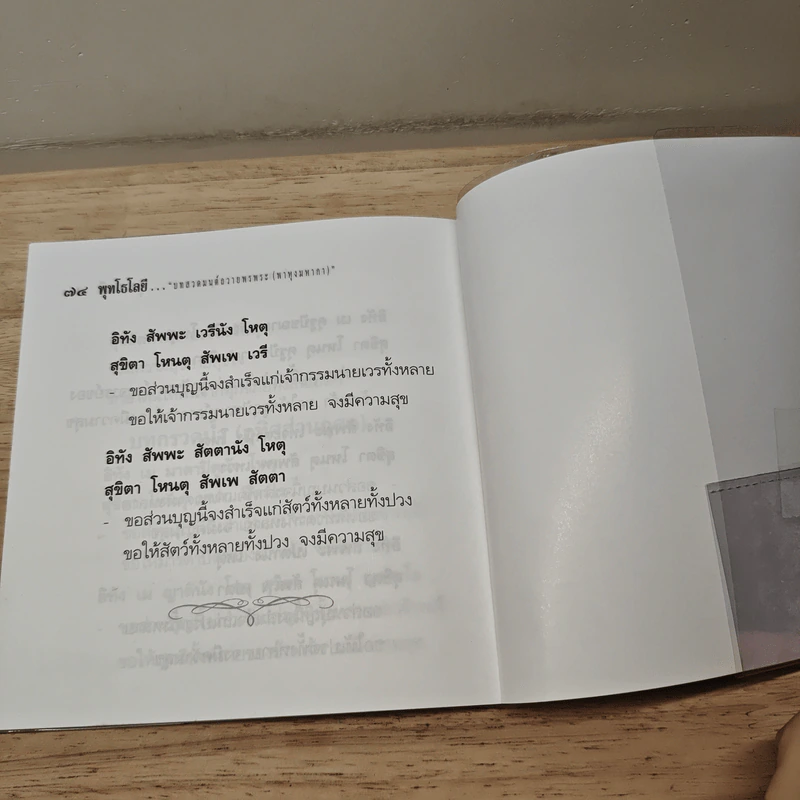 ๗๔ พุทโธโลยี... "บทสวดมนต์ถวายพรพระ (พาหุงมหากา)"
อิทัง สัพพะ เวรีนัง โหตุ
สุขิตา โหนตุ สัพเพ เวรี
- ขอส่วนบุญนี้จงสำเร็จแก่เจ้ากรรมนายเวรทั้งหลาย
ขอให้เจ้ากรรมนายเวรทั้งหลาย จงมีความสุข
อิทัง สัพพะ สัตตานัง โหตุ
สุขิตา โหนตุ สัพเพ สัตตา
- ขอส่วนบุญนี้จงสำเร็จแก่สัตว์ทั้งหลายทั้งปวง
ขอให้สัตว์ทั้งหลายทั้งปวง จงมีความสุข